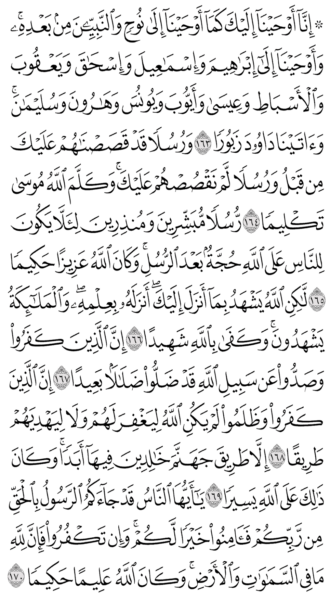 ۞ إِنَّآ أَوْحَيْنَآ إِلَيْكَ كَمَآ أَوْحَيْنَآ إِلَىٰ نُوحٍ وَٱلنَّبِيِّـۧنَ مِنۢ بَعْدِهِۦۚ
وَأَوْحَيْنَآ إِلَىٰٓ إِبْرَٰهِيمَ وَإِسْمَٰعِيلَ وَإِسْحَٰقَ وَيَعْقُوبَ
وَٱلْأَسْبَاطِ وَعِيسَىٰ وَأَيُّوبَ وَيُونُسَ وَهَٰرُونَ وَسُلَيْمَٰنَۚ
وَءَاتَيْنَا دَاوُۥدَ زَبُورًا ١٦٣ وَرُسُلًا قَدْ قَصَصْنَٰهُمْ عَلَيْكَ
مِن قَبْلُ وَرُسُلًا لَّمْ نَقْصُصْهُمْ عَلَيْكَۚ وَكَلَّمَ ٱللَّهُ مُوسَىٰ
تَكْلِيمًا ١٦٤ رُّسُلًا مُّبَشِّرِينَ وَمُنذِرِينَ لِئَلَّا يَكُونَ
لِلنَّاسِ عَلَى ٱللَّهِ حُجَّةٌۢ بَعْدَ ٱلرُّسُلِۚ وَكَانَ ٱللَّهُ عَزِيزًا حَكِيمًا
١٦٥ لَّٰكِنِ ٱللَّهُ يَشْهَدُ بِمَآ أَنزَلَ إِلَيْكَۖ أَنزَلَهُۥ بِعِلْمِهِۦۖ وَٱلْمَلَٰٓئِكَةُ
يَشْهَدُونَۚ وَكَفَىٰ بِٱللَّهِ شَهِيدًا ١٦٦ إِنَّ ٱلَّذِينَ كَفَرُوا۟
وَصَدُّوا۟ عَن سَبِيلِ ٱللَّهِ قَدْ ضَلُّوا۟ ضَلَٰلًۢا بَعِيدًا ١٦٧ إِنَّ ٱلَّذِينَ
كَفَرُوا۟ وَظَلَمُوا۟ لَمْ يَكُنِ ٱللَّهُ لِيَغْفِرَ لَهُمْ وَلَا لِيَهْدِيَهُمْ
طَرِيقًا ١٦٨ إِلَّا طَرِيقَ جَهَنَّمَ خَٰلِدِينَ فِيهَآ أَبَدًاۚ وَكَانَ
ذَٰلِكَ عَلَى ٱللَّهِ يَسِيرًا ١٦٩ يَٰٓأَيُّهَا ٱلنَّاسُ قَدْ جَآءَكُمُ ٱلرَّسُولُ بِٱلْحَقِّ
مِن رَّبِّكُمْ فَـَٔامِنُوا۟ خَيْرًا لَّكُمْۚ وَإِن تَكْفُرُوا۟ فَإِنَّ لِلَّهِ
مَا فِى ٱلسَّمَٰوَٰتِ وَٱلْأَرْضِۚ وَكَانَ ٱللَّهُ عَلِيمًا حَكِيمًا ١٧٠